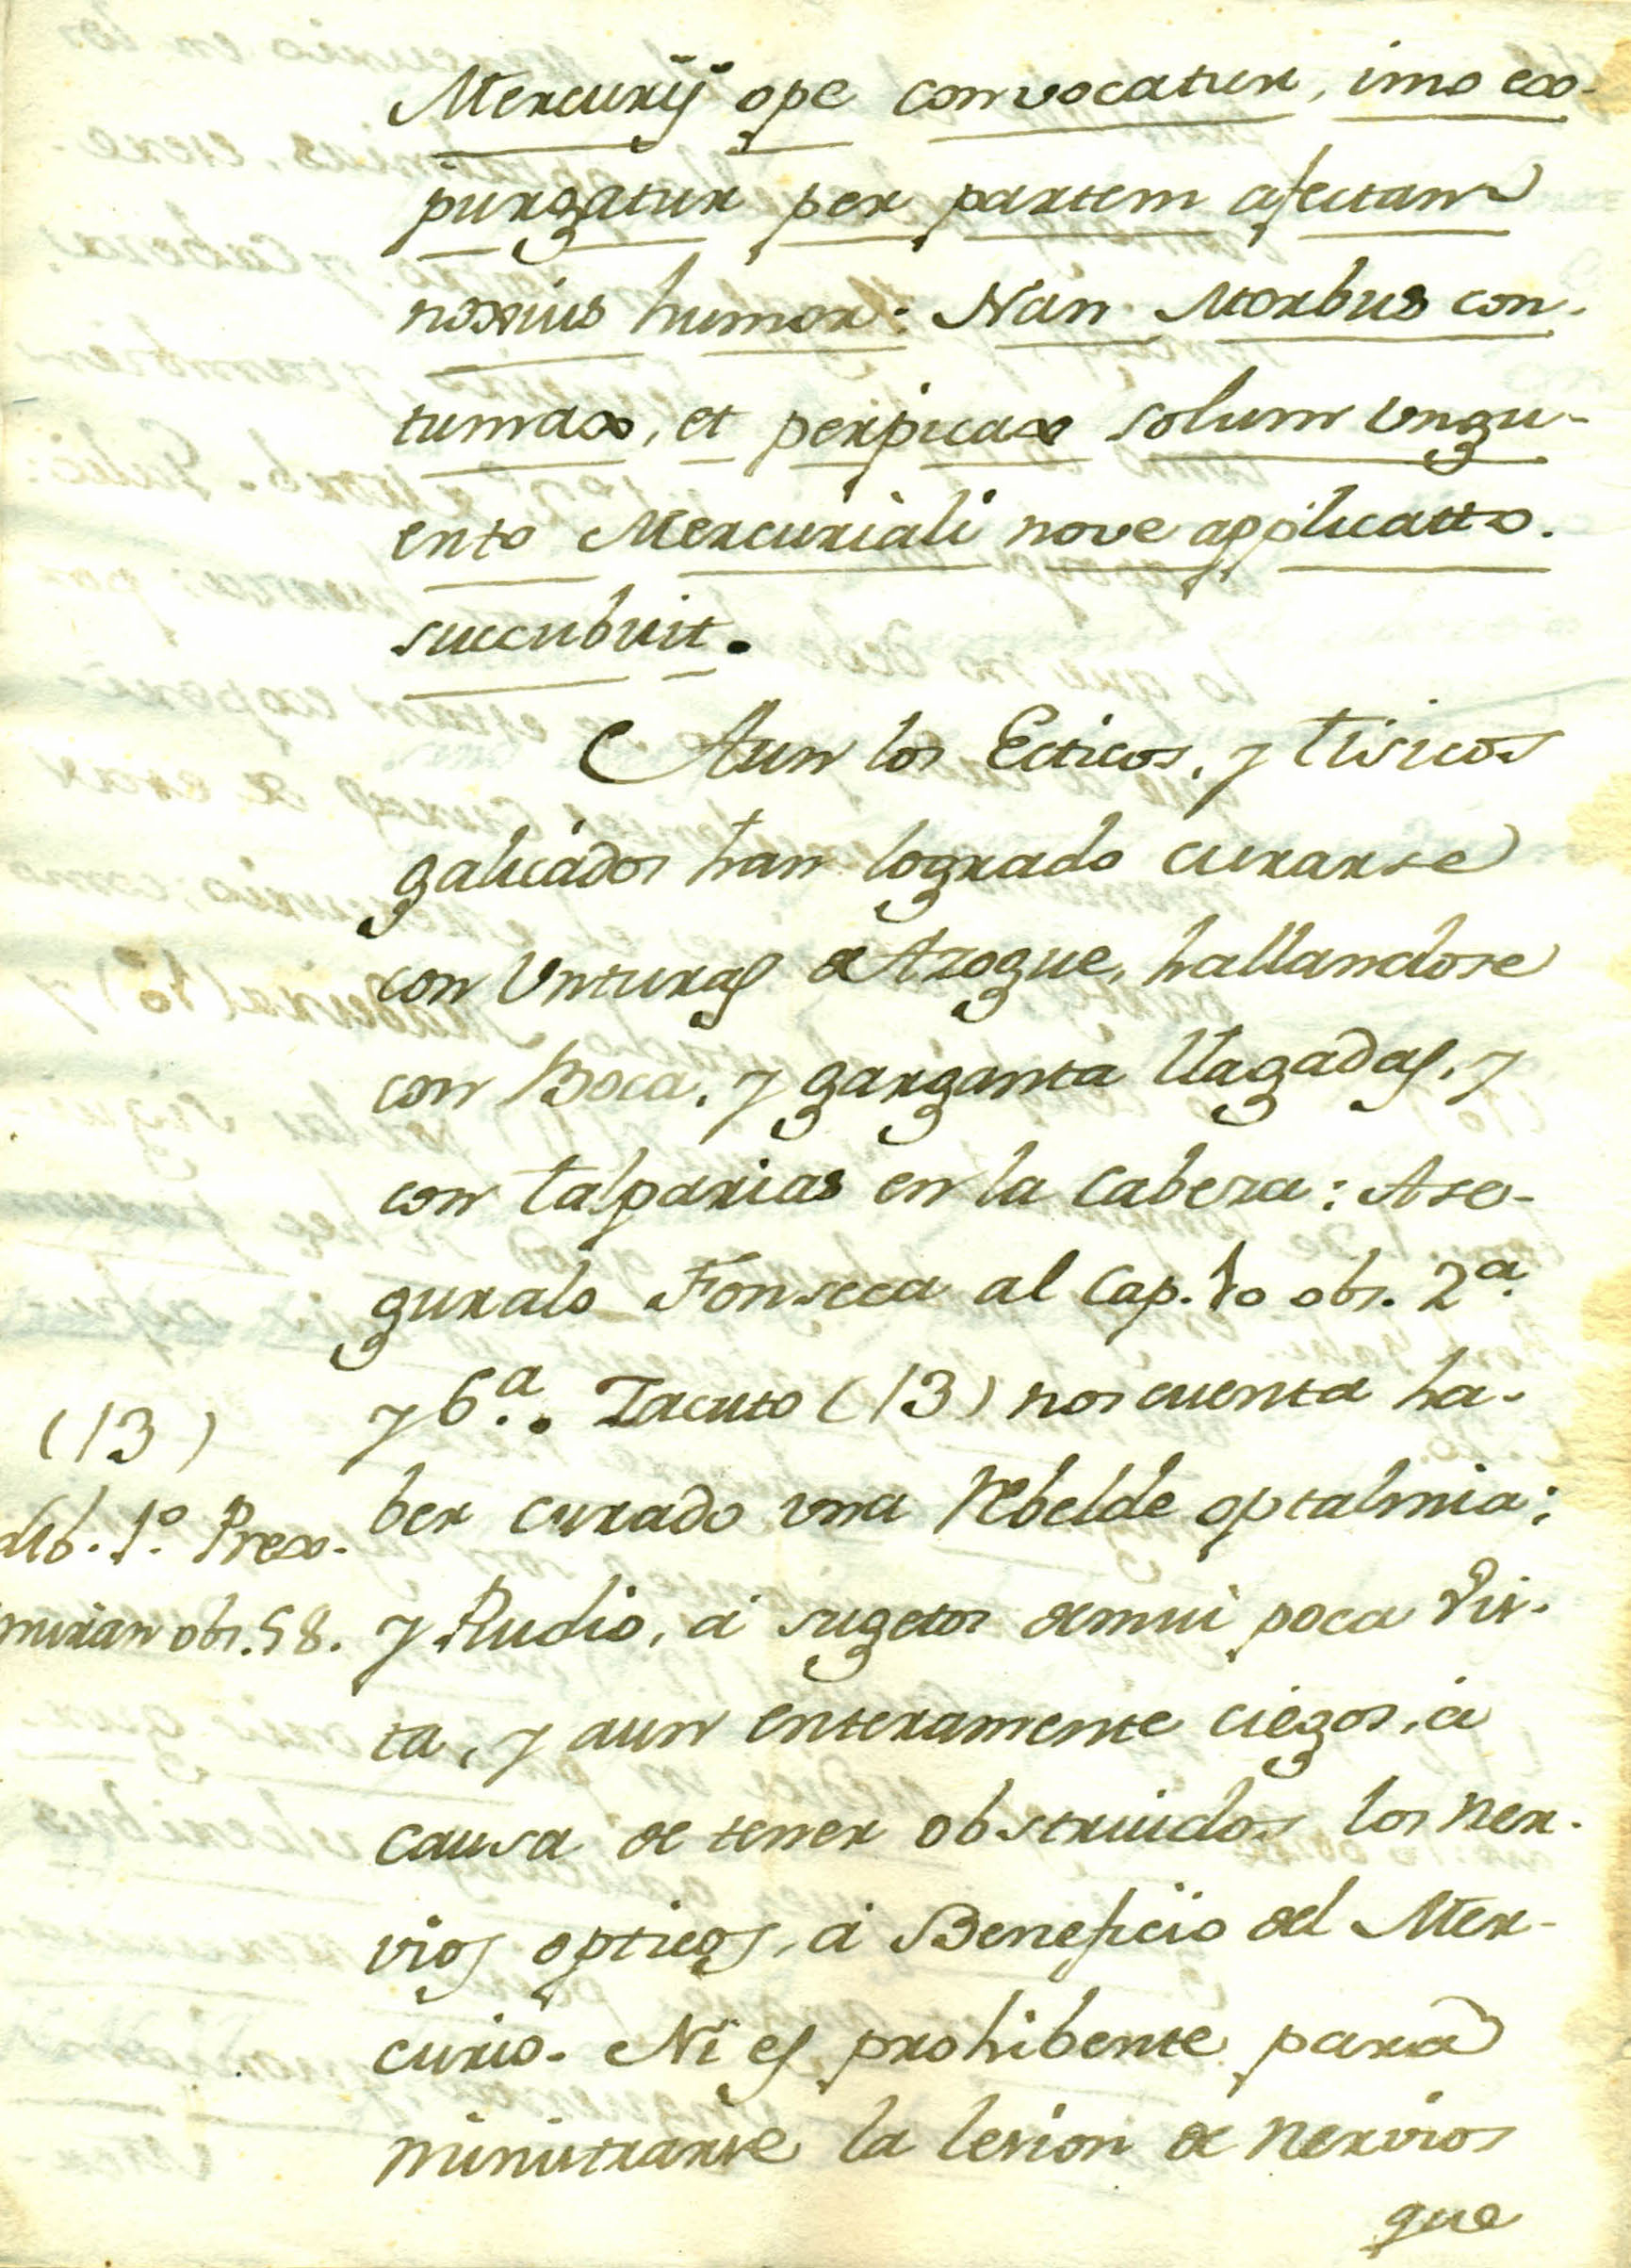 Mercurij ope convocatur, imo ex-
purgatur per partem afectam
noxius humor: Nan Morbus con-
tumax, et perpicax solum Vngu-
ento Mercuriali nove applicatto.
succubuit.
Aun los Ecticos, y tisicos
galicados han logrado curarse
con Unturas de Azogue, hallandose
con Boca, y garganta llagadas, y
con talparias en la Cabeza: Ase-
guralo Fonseca al Cap. 10 obs. 2ª
y 6ª. Zacuto (13) nos cuenta ha-
ber curado una rebelde optalmia;
y Rudio, á sugetos de mui poca vis-
ta, y aun enteramente ciegos, á
causa de tener obstruidos los ner-
vios opticos, á Beneficio del Mer-
curio. Ni es prohibente para
ministrarse la lesion de nervios
que
(13)
Lib. 1º Prax.
miran obs. 58.